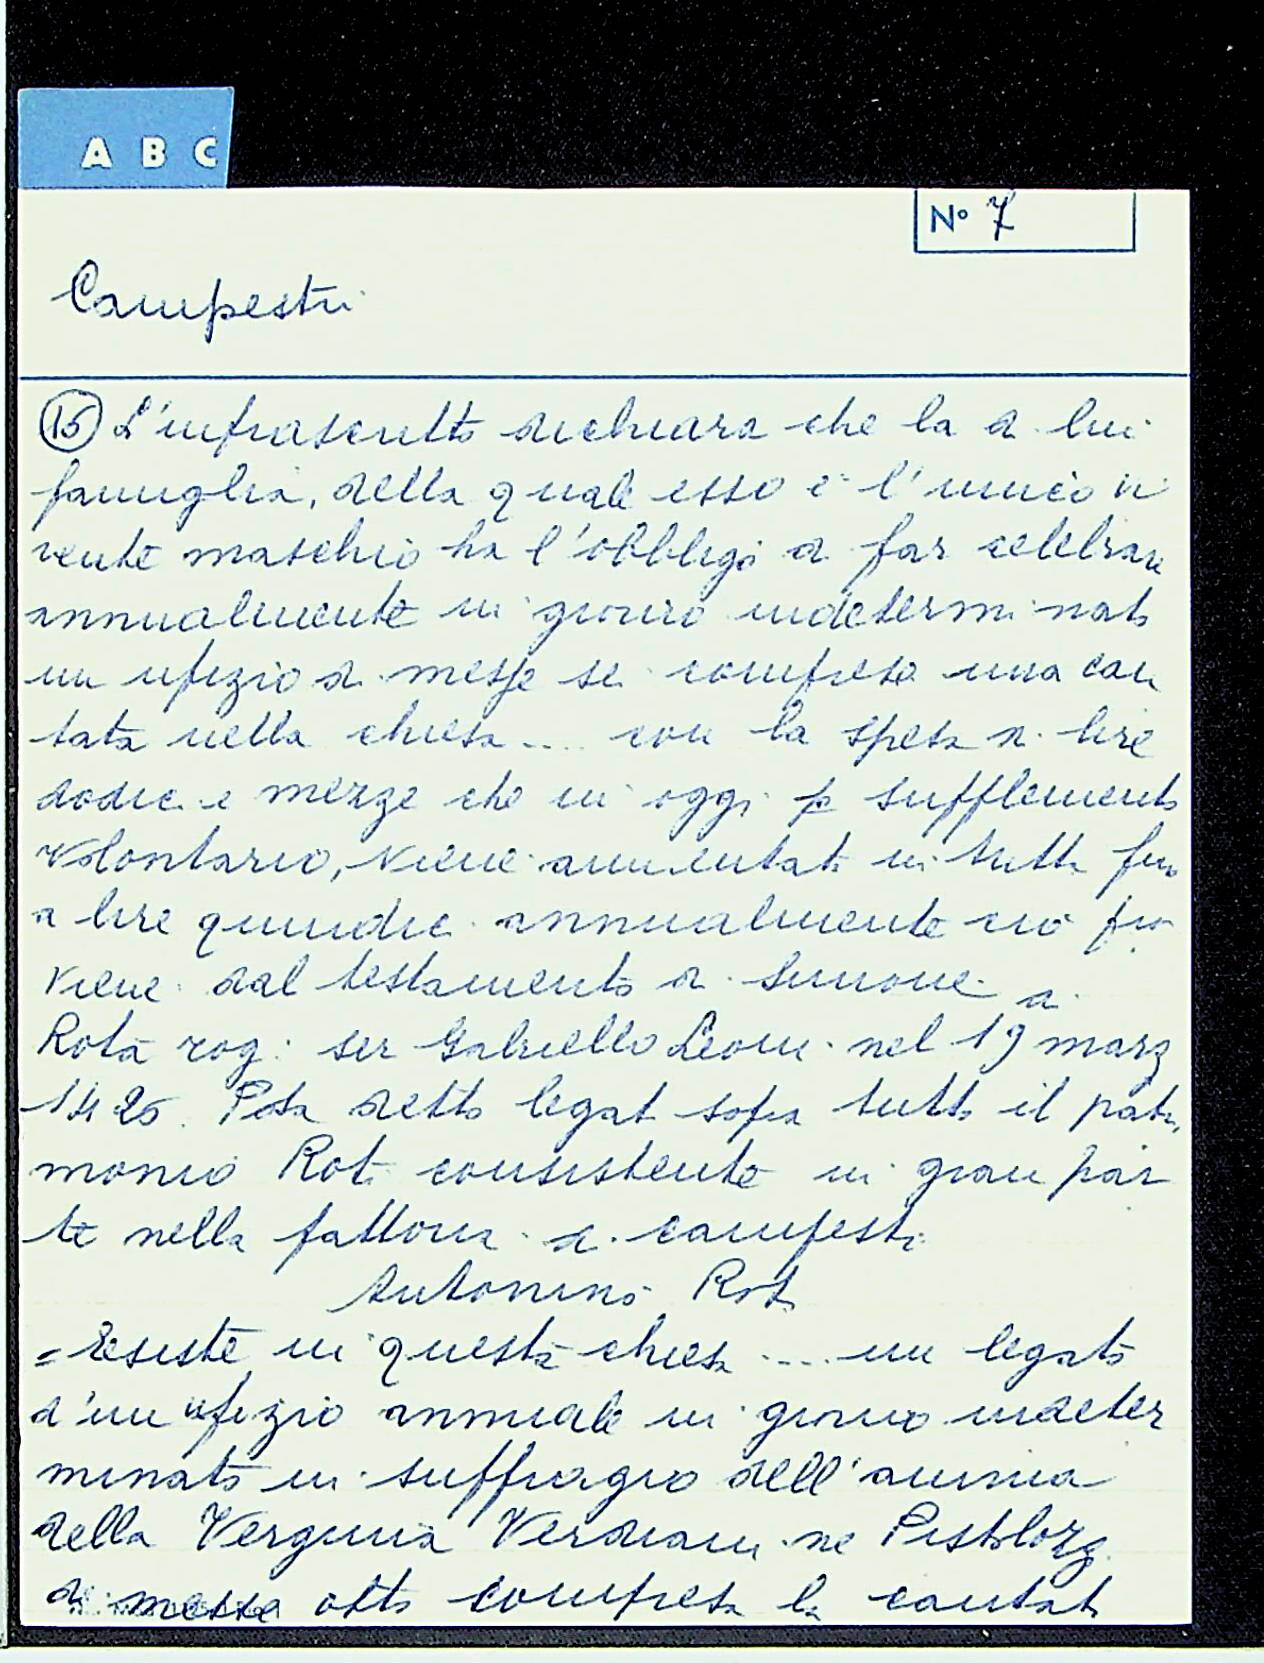 A B C
N° 7
Campestri
(15) L'infrascritto dichiara che la di lui
famiglia, della quale esso è l'unico vi
vente maschio ha l'obbligo di far celebrare
annualmente in giorno indeterminato
un ufizio di messe sei compreso una can
tata nella chiesa .... con la spesa di lire
dodici e mezze che in oggi p supplemento
volontario, viene aumentata in tutto fino
a lire quindici annualmente ciò pro
viene dal testamento di Simone di
Rota rog: ser Gabriello Leoni nel 19 marzo
1425. Posa detto legato sopra tutto il patri
monio Rota consistente in gran par
te nella fattoria di campestri
Antonino Rota
= Esiste in questa chiesa .... un legato
d'un ufizio annuale in giorno indeter
minato in suffragio dell'anima
della Verginia Verdiani ne' Pistolozzi
di messe otto compresa la cantata